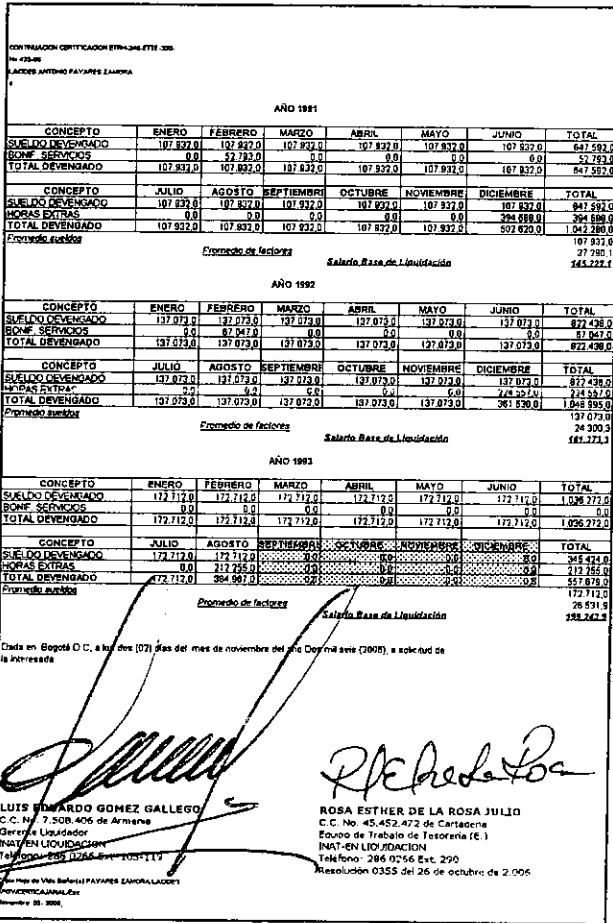 CONTINUACION CERTIFICACION ETRH-346-ETTE-330-
No 433-06
LACIDES ANTONIO PAYARES ZAMORA
AÑO 1991
CONCEPTO ENERO FEBRERO MARZO ABRIL MAYO JUNIO TOTAL
SUELDO DEVENGADO 107.932,0 107.932,0 107.932,0 107.932,0 107.932,0 107.932,0 647.592,0
BONIF. SERVICIOS 0,0 52.793,0 0,0 0,0 0,0 0,0 52.793,0
TOTAL DEVENGADO 107.932,0 107.932,0 107.932,0 107.932,0 107.932,0 107.932,0 647.592,0
CONCEPTO JULIO AGOSTO SEPTIEMBRE OCTUBRE NOVIEMBRE DICIEMBRE TOTAL
SUELDO DEVENGADO 107.932,0 107.932,0 107.932,0 107.932,0 107.932,0 107.932,0 647.592,0
HORAS EXTRAS 0,0 0,0 0,0 0,0 0,0 394.688,0 394.688,0
TOTAL DEVENGADO 107.932,0 107.932,0 107.932,0 107.932,0 107.932,0 502.620,0 1.042.280,0
Promedio sueldos 107.932,0
Promedio de factores 37.290,1
Salario Base de Liquidación 145.222,1
AÑO 1992
CONCEPTO ENERO FEBRERO MARZO ABRIL MAYO JUNIO TOTAL
SUELDO DEVENGADO 137.073,0 137.073,0 137.073,0 137.073,0 137.073,0 137.073,0 822.438,0
BONIF. SERVICIOS 0,0 67.047,0 0,0 0,0 0,0 0,0 67.047,0
TOTAL DEVENGADO 137.073,0 137.073,0 137.073,0 137.073,0 137.073,0 137.073,0 822.438,0
CONCEPTO JULIO AGOSTO SEPTIEMBRE OCTUBRE NOVIEMBRE DICIEMBRE TOTAL
SUELDO DEVENGADO 137.073,0 137.073,0 137.073,0 137.073,0 137.073,0 137.073,0 822.438,0
HORAS EXTRAS 0,0 0,0 0,0 0,0 0,0 224.557,0 224.557,0
TOTAL DEVENGADO 137.073,0 137.073,0 137.073,0 137.073,0 137.073,0 361.630,0 1.046.995,0
Promedio sueldos 137.073,0
Promedio de factores 24.300,3
Salario Base de Liquidación 161.373,3
AÑO 1993
CONCEPTO ENERO FEBRERO MARZO ABRIL MAYO JUNIO TOTAL
SUELDO DEVENGADO 172.712,0 172.712,0 172.712,0 172.712,0 172.712,0 172.712,0 1.036.272,0
BONIF. SERVICIOS 0,0 0,0 0,0 0,0 0,0 0,0 0,0
TOTAL DEVENGADO 172.712,0 172.712,0 172.712,0 172.712,0 172.712,0 172.712,0 1.036.272,0
CONCEPTO JULIO AGOSTO SEPTIEMBRE OCTUBRE NOVIEMBRE DICIEMBRE TOTAL
SUELDO DEVENGADO 172.712,0 172.712,0 0,0 0,0 0,0 0,0 345.424,0
HORAS EXTRAS 0,0 212.255,0 0,0 0,0 0,0 0,0 212.255,0
TOTAL DEVENGADO 172.712,0 384.967,0 0,0 0,0 0,0 0,0 557.679,0
Promedio sueldos 172.712,0
Promedio de factores 26.531,9
Salario Base de Liquidación 199.243,9
Dada en Bogotá D.C, a los dos (02) días del mes de noviembre del año Dos mil seis (2006), a solicitud de
la interesada
LUIS EDUARDO GOMEZ GALLEGO
C.C. No. 7.508.406 de Armenia
Gerente Liquidador
INAT-EN LIQUIDACION
Teléfono: 286 0266 Ext. 103-119
ROSA ESTHER DE LA ROSA JULIO
C.C. No. 45.452.472 de Cartagena
Equipo de Trabajo de Tesorería (E.)
INAT-EN LIQUIDACION
Teléfono: 286 0266 Ext. 290
Resolución 0355 del 26 de octubre de 2.006
Hoja de Vida Señor(a) PAYARES ZAMORA LACIDES